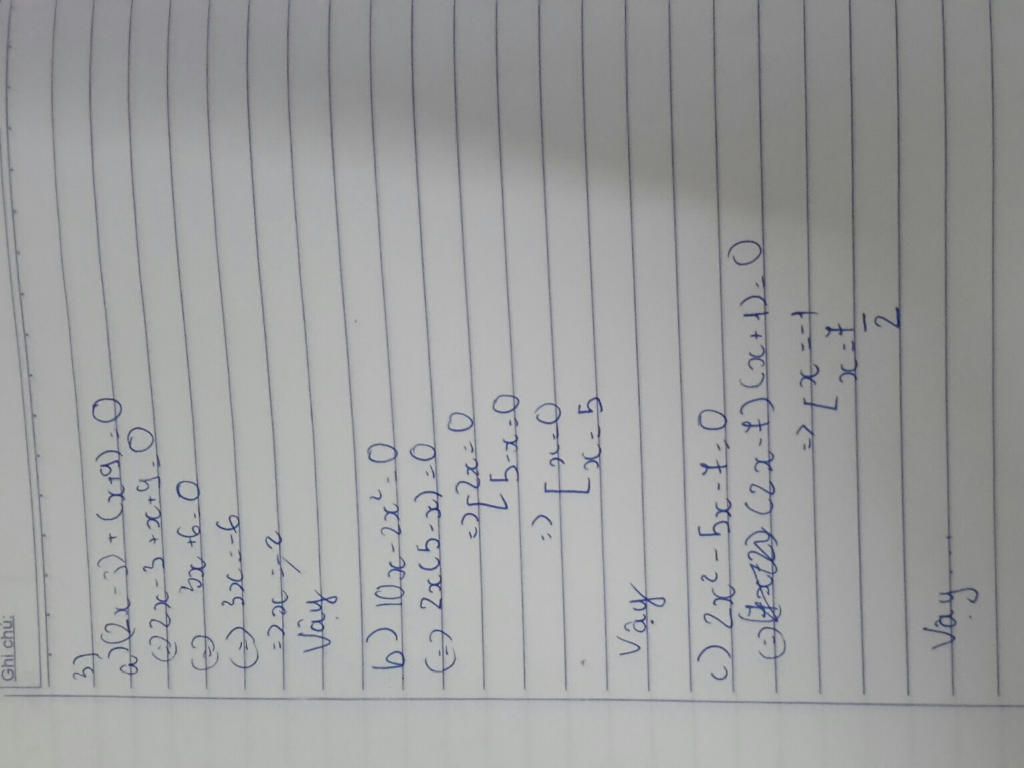 Ghi chú:
3)
a) (2x - 3) + (x+9) = 0
(=) 2x - 3 + x + 9 = 0
(=) 3x + 6 = 0
(=) 3x = -6
=> x = -2
Vậy
b) 10x - 2x² = 0
(=) 2x(5 - x) = 0
=> [ 2x = 0
[ 5 - x = 0
=> [ x = 0
[ x = 5
Vậy
c) 2x² - 5x - 7 = 0
(=) (2x - 7)(x + 1) = 0
=> [ x = -1
[ x = 7/2
Vậy....